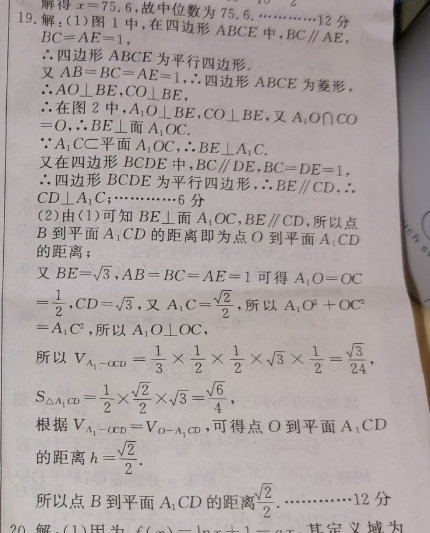 解得 x=75.6,故中位数为 75.6.…………12 分
19.解:(1)图 1 中,在四边形 ABCE 中,BC∥AE,
BC=AE=1,
∴四边形 ABCE 为平行四边形.
又 AB=BC=AE=1,∴四边形 ABCE 为菱形,
∴AO⊥BE,CO⊥BE,
∴在图 2 中,A₁O⊥BE,CO⊥BE,又 A₁O∩CO
=O,∴BE⊥面 A₁OC.
∵A₁C⊂平面 A₁OC,∴BE⊥A₁C.
又在四边形 BCDE 中,BC∥DE,BC=DE=1,
∴四边形 BCDE 为平行四边形,∴BE∥CD,∴
CD⊥A₁C;…………6 分
(2)由(1)可知 BE⊥面 A₁OC,BE∥CD,所以点
B 到平面 A₁CD 的距离即为点 O 到平面 A₁CD
的距离;
又 BE=√3,AB=BC=AE=1 可得 A₁O=OC
=1/2,CD=√3,又 A₁C=√2/2,所以 A₁O²+OC²
=A₁C²,所以 A₁O⊥OC,
所以 V_{A₁-OCD}=1/3×1/2×1/2×√3×1/2=√3/24,
S_{△A₁CD}=1/2×√2/2×√3=√6/4,
根据 V_{A₁-OCD}=V_{O-A₁CD},可得点 O 到平面 A₁CD
的距离 h=√2/2.
所以点 B 到平面 A₁CD 的距离√2/2.…………12 分
20.解:(1)因为 f(x)=lnx+1-ax,其定义域为